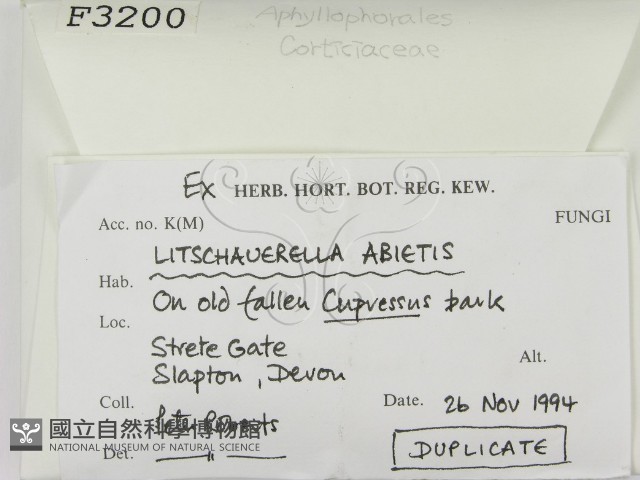 F3200
Aphyllophorales
Corticiaceae
Ex HERB. HORT. BOT. REG. KEW.
Acc. no. K(M)
FUNGI
LITSCHAUERELLA ABIETIS
Hab.
On old fallen Cupressus bark
Loc.
Strete Gate
Slapton, Devon
Alt.
Coll. Peter Roberts
Date. 26 Nov 1994
Det. — 11 —
DUPLICATE
國立自然科學博物館
NATIONAL MUSEUM OF NATURAL SCIENCE